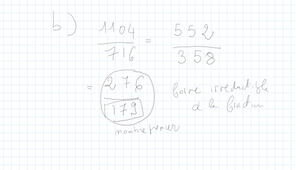 b) 1104/716 = 552/358
= 276/179 forme irréductible de la fraction
nombre premier